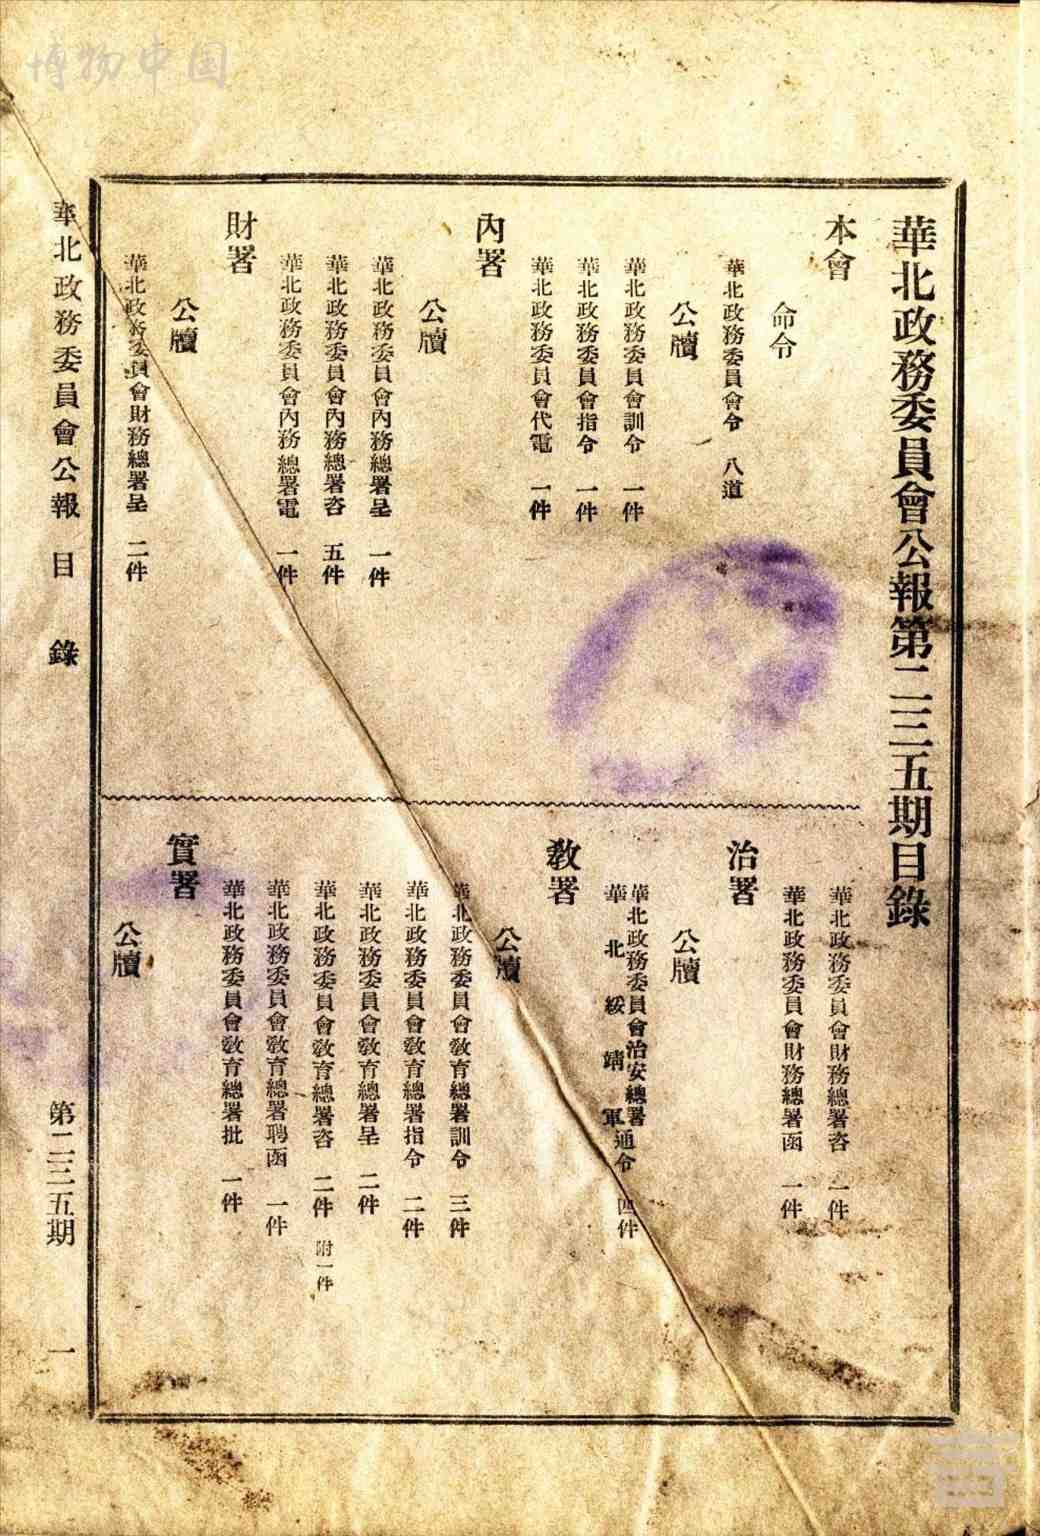 博物中国
華北政務委員會公報第二三五期目錄
本會
命令
華北政務委員會令 八道
公牘
華北政務委員會訓令 一件
華北政務委員會指令 一件
華北政務委員會代電 一件
內署
公牘
華北政務委員會內務總署呈 一件
華北政務委員會內務總署咨 五件
華北政務委員會內務總署電 一件
財署
公牘
華北政務委員會財務總署呈 二件
華北政務委員會財務總署咨 一件
華北政務委員會財務總署函 一件
治署
公牘
華北政務委員會治安總署
華北綏靖軍通令 四件
教署
公牘
華北政務委員會教育總署訓令 三件
華北政務委員會教育總署指令 二件
華北政務委員會教育總署呈 二件
華北政務委員會教育總署咨 二件 附一件
華北政務委員會教育總署聘函 一件
華北政務委員會教育總署批 一件
實署
公牘
華北政務委員會公報 目錄 第二三五期 一